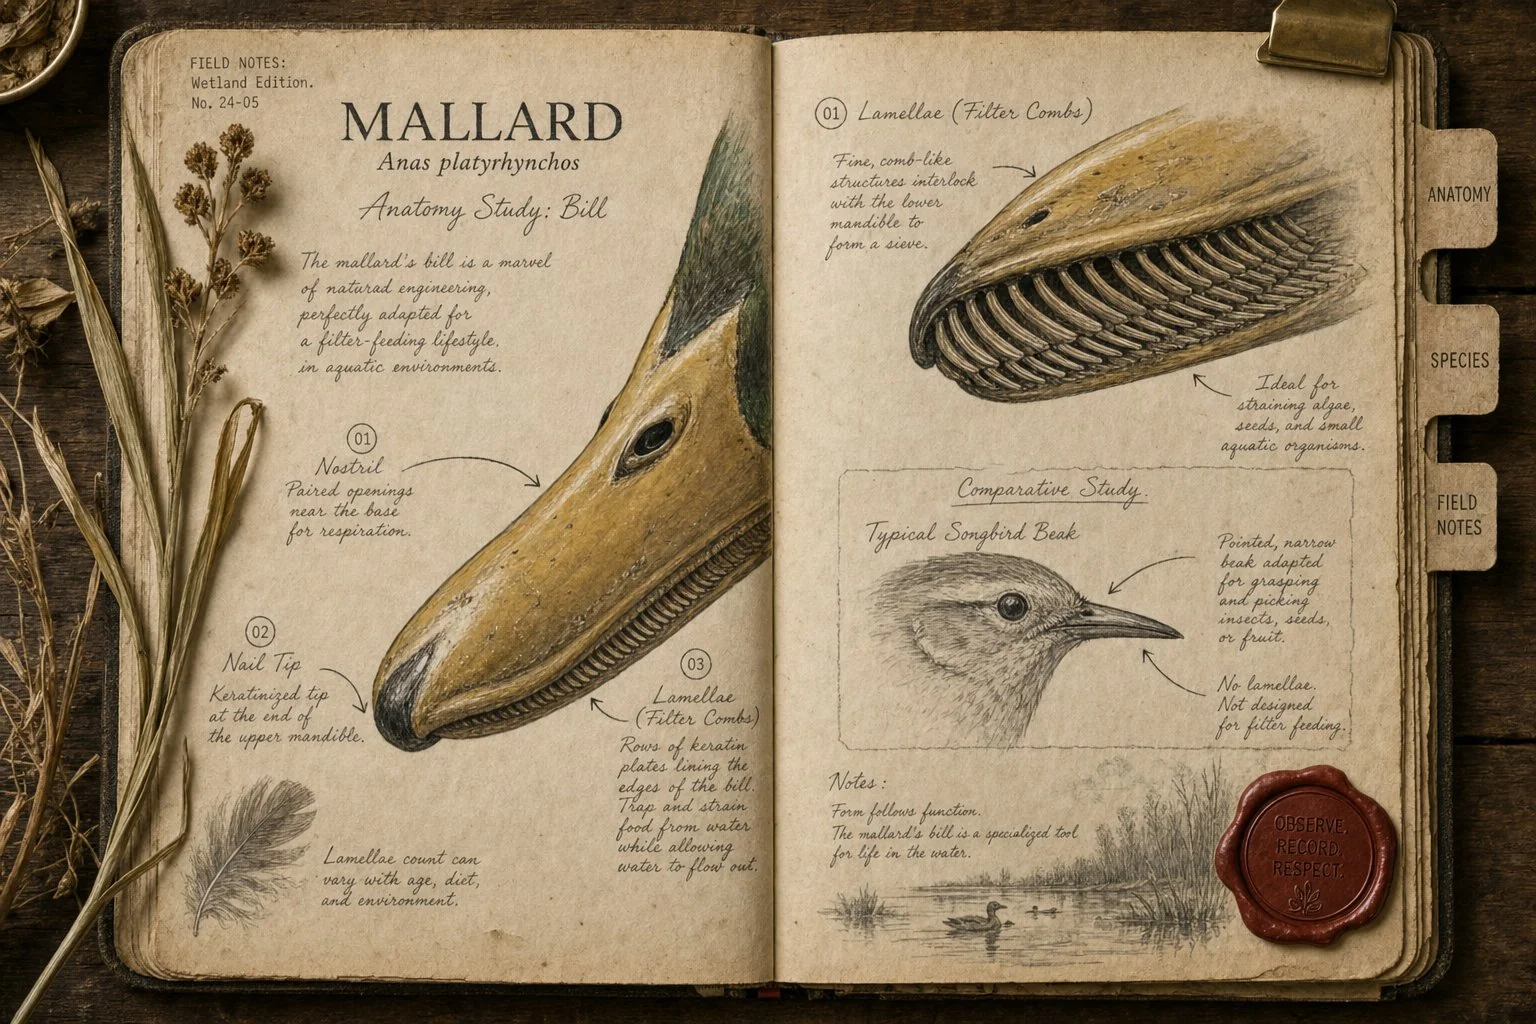 FIELD NOTES:
Wetland Edition.
No. 24-05
MALLARD
Anas platyrhynchos
Anatomy Study: Bill
The mallard's bill is a marvel
of naturad engineering,
perfectly adapted for
a filter-feeding lifestyle.
in aquatic environments.
01
Nostril
Paired openings
near the base
for respiration.
02
Nail Tip
Keratinized tip
at the end of
the upper mandible.
03
Lamellae
(Filter Combs)
Rows of keratin
plates lining the
edges of the bill.
Trap and strain
food from water
while allowing
water to flow out.
Lamellae count can
vary with age, diet,
and environment.
01 Lamellae (Filter Combs)
Fine, comb-like
structures interlock
with the lower
mandible to
form a sieve.
Ideal for
straining algae,
seeds, and small
aquatic organisms.
Comparative Study.
Typical Songbird Beak
Pointed, narrow
beak adapted
for grasping
and picking
insects, seeds,
or fruit.
No lamellae.
Not designed
for filter feeding.
Notes:
Form follows function.
The mallard's bill is a specialized tool
for life in the water.
OBSERVE,
RECORD,
RESPECT.
ANATOMY
SPECIES
FIELD
NOTES